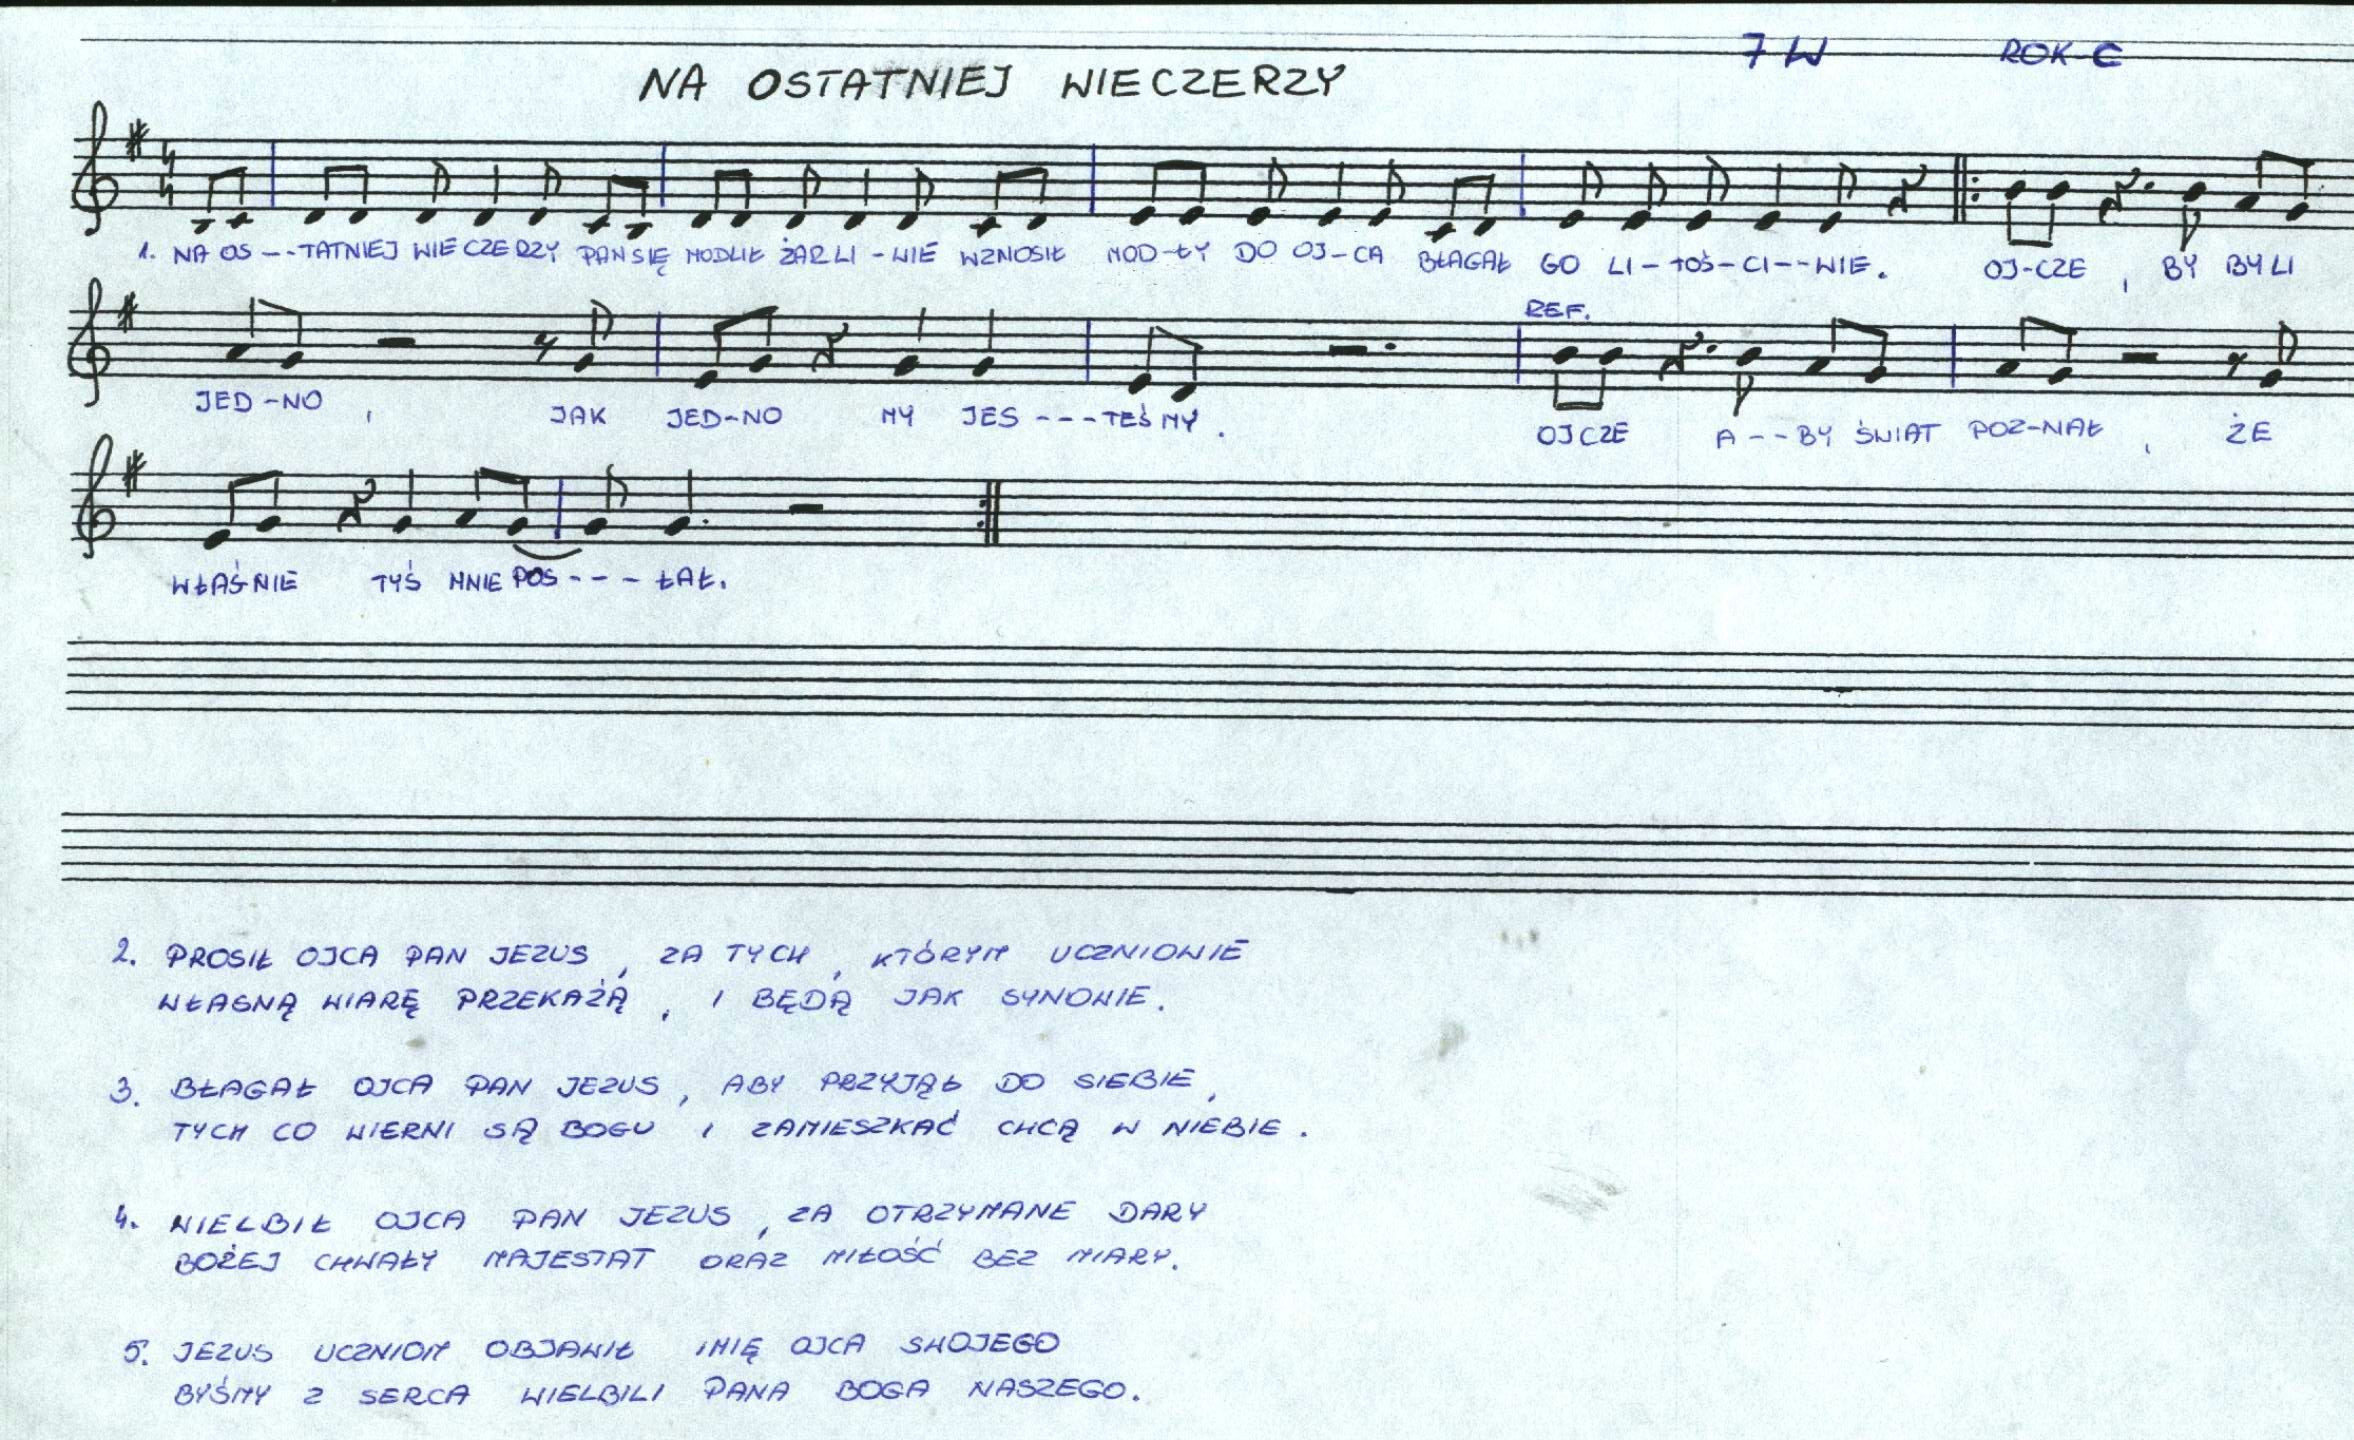 7 W ROK C
NA OSTATNIEJ WIECZERZY
4 4
1. NA OS---TATNIEJ WIECZERZY PAN SIĘ MODLIŁ ŻARLI-WIE WZNOSIŁ MOD-ŁY DO OJ-CA BŁAGAŁ GO LI-TOŚ-CI--WIE. OJ-CZE, BY BYLI
REF.
JED-NO, JAK JED-NO MY JES---TEŚMY. OJCZE A--BY ŚWIAT POZ-NAŁ, ŻE
WŁAŚNIE TYŚ MNIE POS---ŁAŁ.
2. PROSIŁ OJCA PAN JEZUS, ZA TYCH, KTÓRYM UCZNIOWIE
WŁASNĄ WIARĘ PRZEKAŻĄ, I BĘDĄ JAK SYNOWIE.
3. BŁAGAŁ OJCA PAN JEZUS, ABY PRZYJĄŁ DO SIEBIE,
TYCH CO WIERNI SĄ BOGU I ZAMIESZKAĆ CHCĄ W NIEBIE.
4. WIELBIŁ OJCA PAN JEZUS, ZA OTRZYMANE DARY
BOŻEJ CHWAŁY MAJESTAT ORAZ MIŁOŚĆ BEZ MIARY.
5. JEZUS UCZNIOM OBJAWIŁ IMIĘ OJCA SWOJEGO
BYŚMY Z SERCA WIELBILI PANA BOGA NASZEGO.